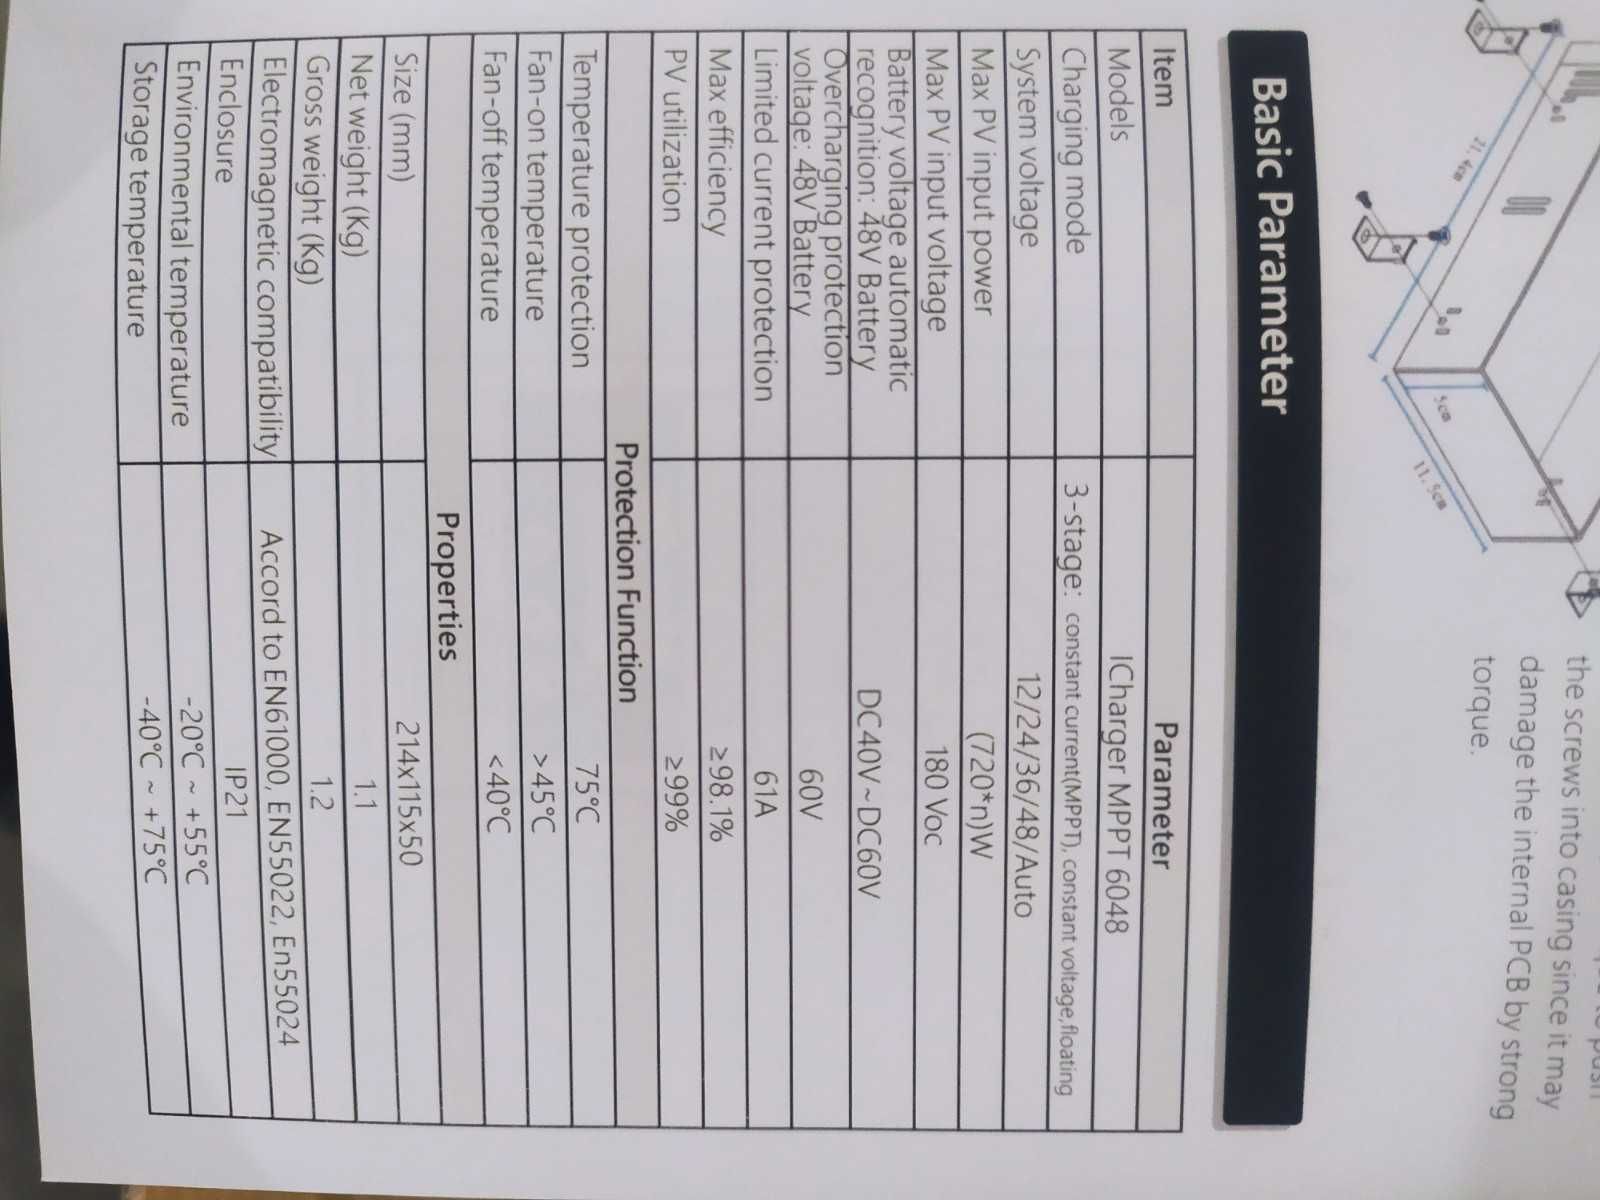 21.4cm
5cm
11.5cm
the screws into casing since it may
damage the internal PCB by strong
torque.
Basic Parameter
Item Parameter
Models ICharger MPPT 6048
Charging mode 3-stage: constant current(MPPT), constant voltage,floating
System voltage 12/24/36/48/Auto
Max PV input power (720*n)W
Max PV input voltage 180 Voc
Battery voltage automatic
recognition: 48V Battery DC40V~DC60V
Overcharging protection
voltage: 48V Battery 60V
Limited current protection 61A
Max efficiency ≥98.1%
PV utilization ≥99%
Protection Function
Temperature protection 75°C
Fan-on temperature >45°C
Fan-off temperature <40°C
Properties
Size (mm) 214x115x50
Net weight (Kg) 1.1
Gross weight (Kg) 1.2
Electromagnetic compatibility Accord to EN61000, EN55022, En55024
Enclosure IP21
Environmental temperature -20°C ~ +55°C
Storage temperature -40°C ~ +75°C